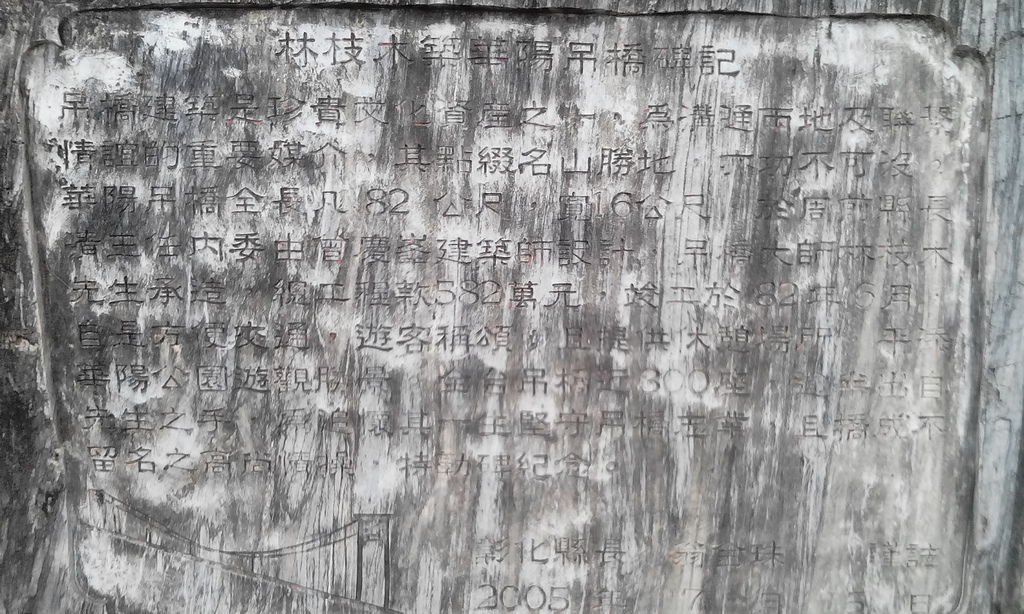 林枝木築華陽吊橋碑記
吊橋建築是珍貴文化資產之一,為溝通兩地及聯繫
情誼的重要媒介,其點綴名山勝地 亦功不可沒
華陽吊橋全長凡82公尺,寬16公尺 於周前縣長
任內委由曾慶峯建築師設計 吊橋大師林枝木
先生承造 工程款582萬元,竣工於82年6月
自是方便交通,遊客稱頌,且提供大 場所 平添
華陽公園遊觀勝景 全台吊橋近300座 出自
先生之手 其一生堅守吊橋志業 且橋成不
留名之高尚情操 特勒碑紀念。
彰化縣長 翁金珠 謹註
2005年7月5日